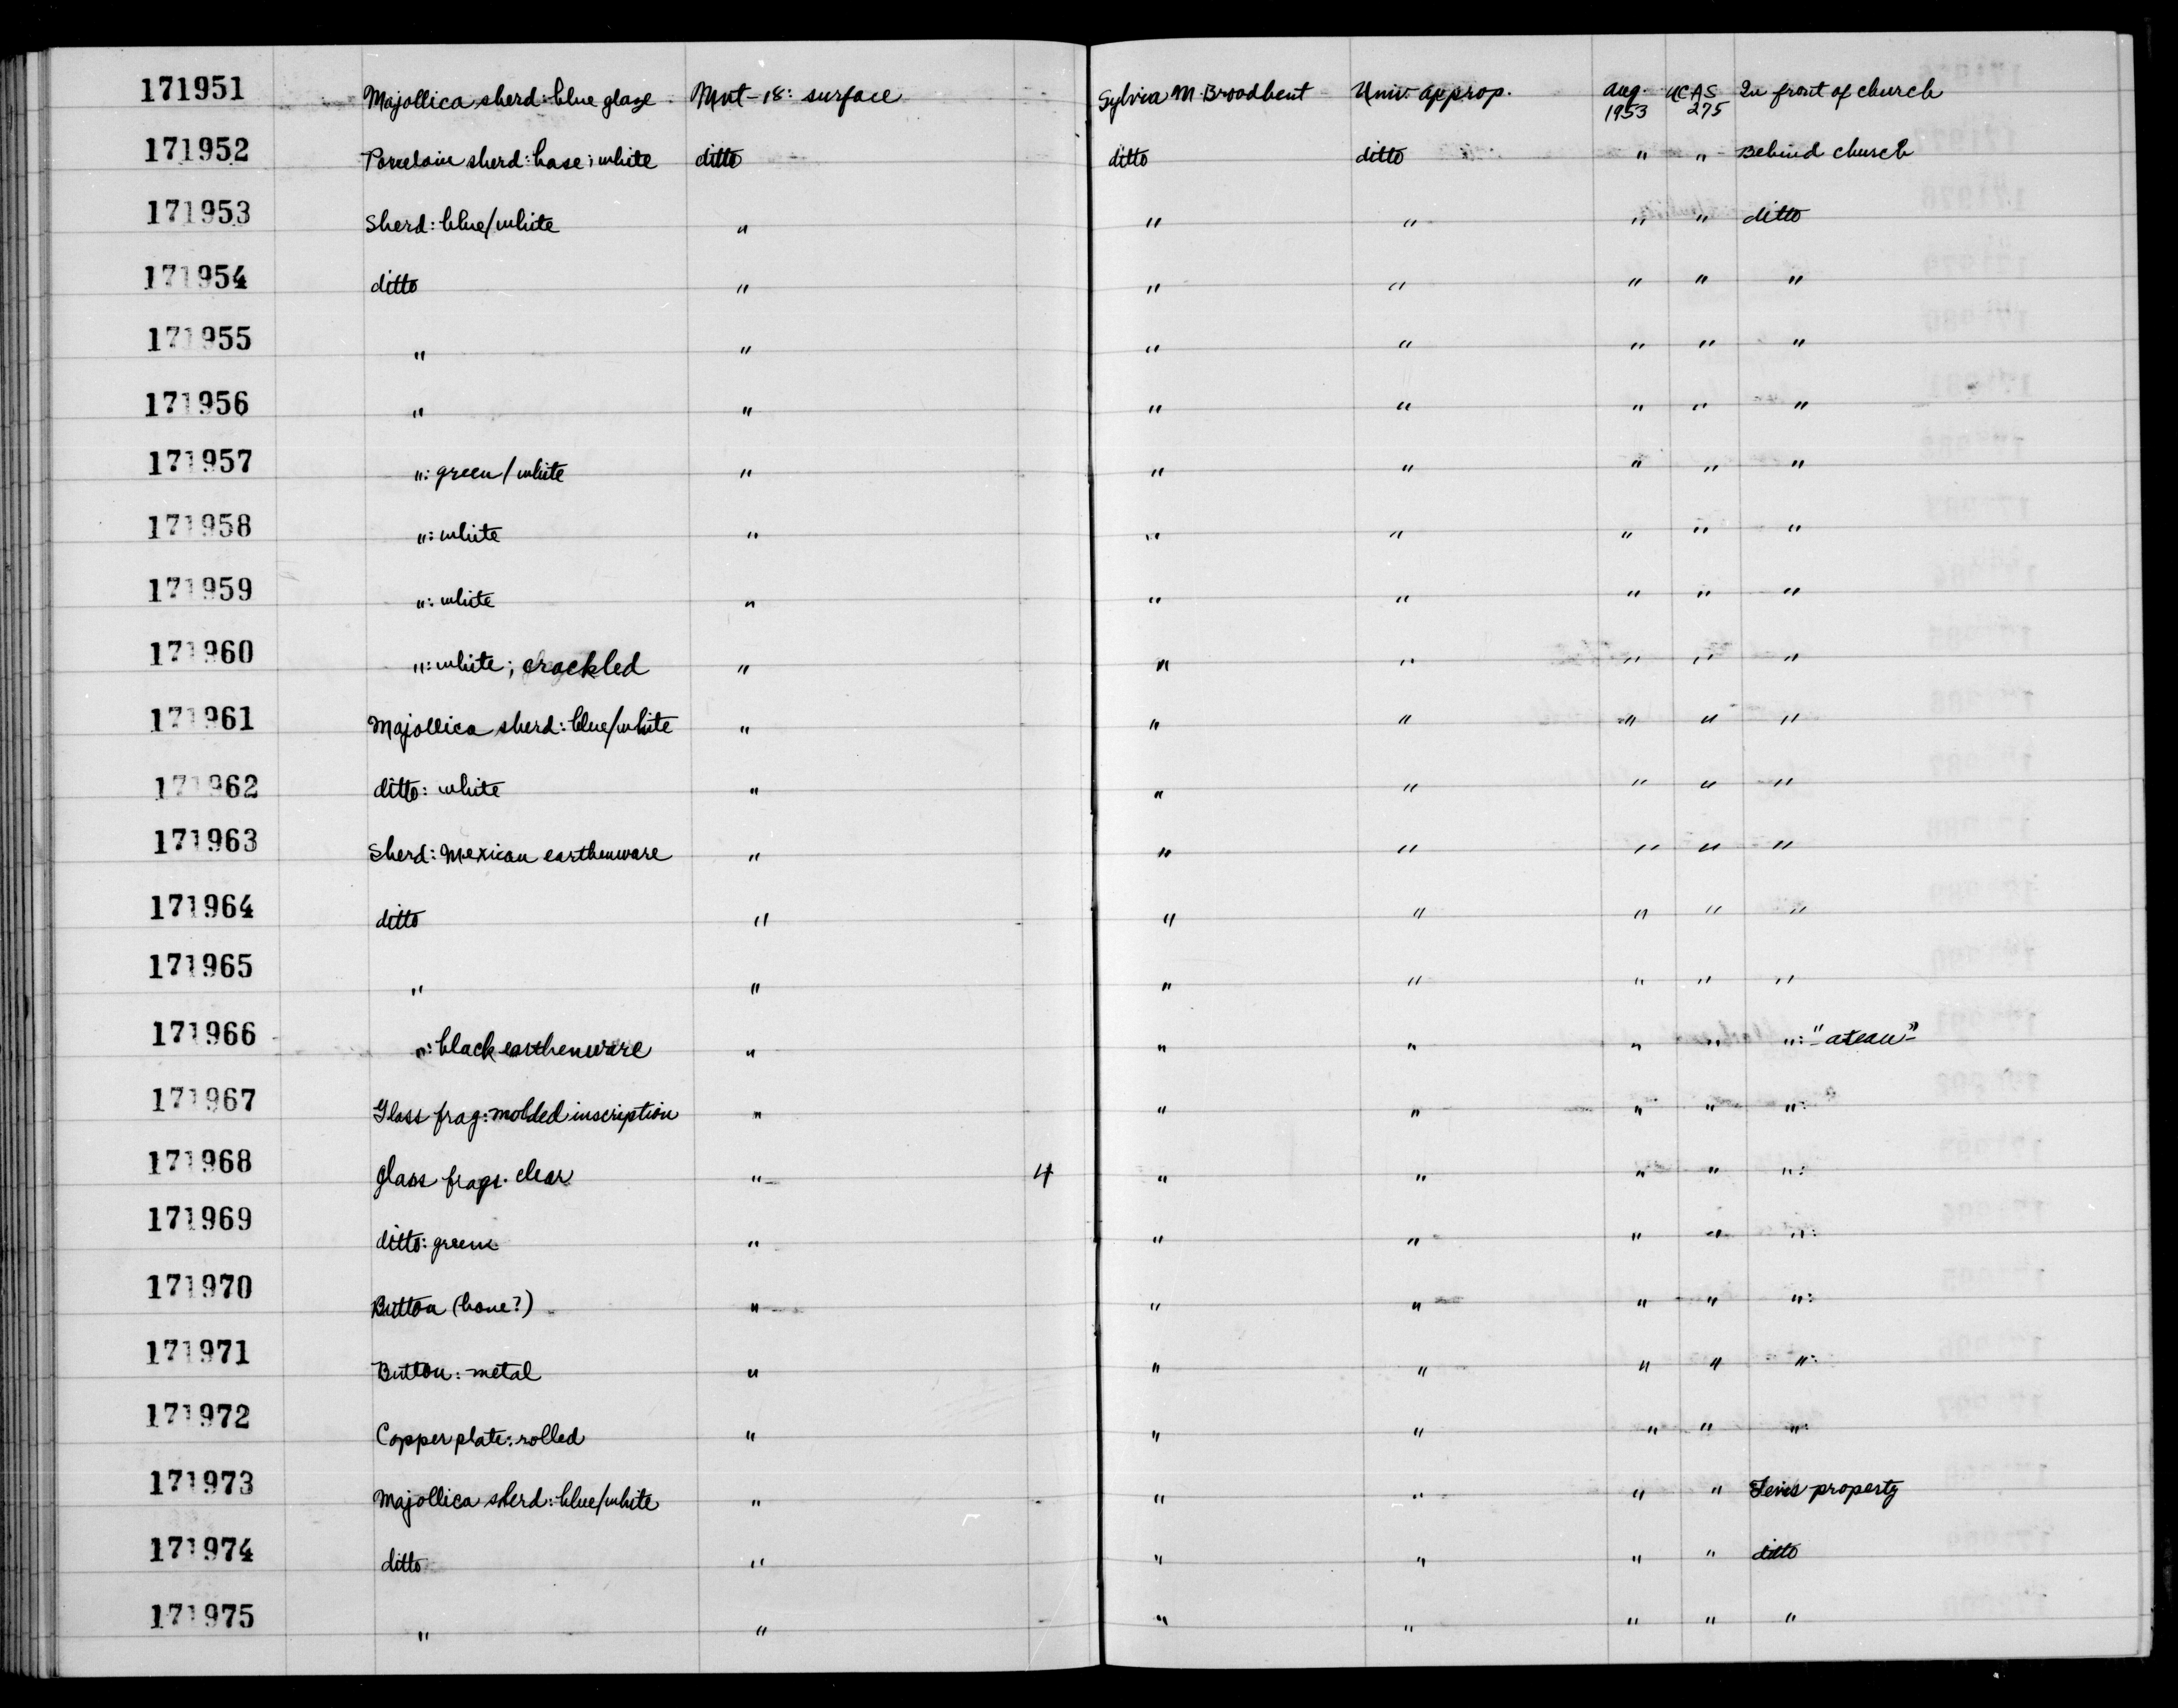 171951 Majollica sherd: blue glaze Mnt-18: surface Sylvia M Broadbent Univ. approp. Aug. 1953 UCAS 275 In front of church
171952 Porcelain sherd: base; white ditto ditto ditto " " Behind church
171953 Sherd: blue/white " " " " " ditto
171954 ditto " " " " " "
171955 " " " " " " "
171956 " " " " " " "
171957 ": green/white " " " " " "
171958 ": white " " " " " "
171959 ": white " " " " " "
171960 ": white; crackled " " " " " "
171961 Majollica sherd: blue/white " " " " " "
171962 ditto: white " " " " " "
171963 Sherd: Mexican earthenware " " " " " "
171964 ditto " " " " " "
171965 " " " " " " "
171966 ": black earthenware " " " " " ":
171967 Glass frag: molded inscription " " " " " ":
171968 Glass frags. clear " 4 " " " " ":
171969 ditto: green " " " " " ":
171970 Button (bone?) " " " " " ":
171971 Button: metal " " " " " ":
171972 Copper plate: rolled " " " " " ":
171973 Majollica sherd: blue/white " " " " " property
171974 ditto " " " " " ditto
171975 " " " " " " "